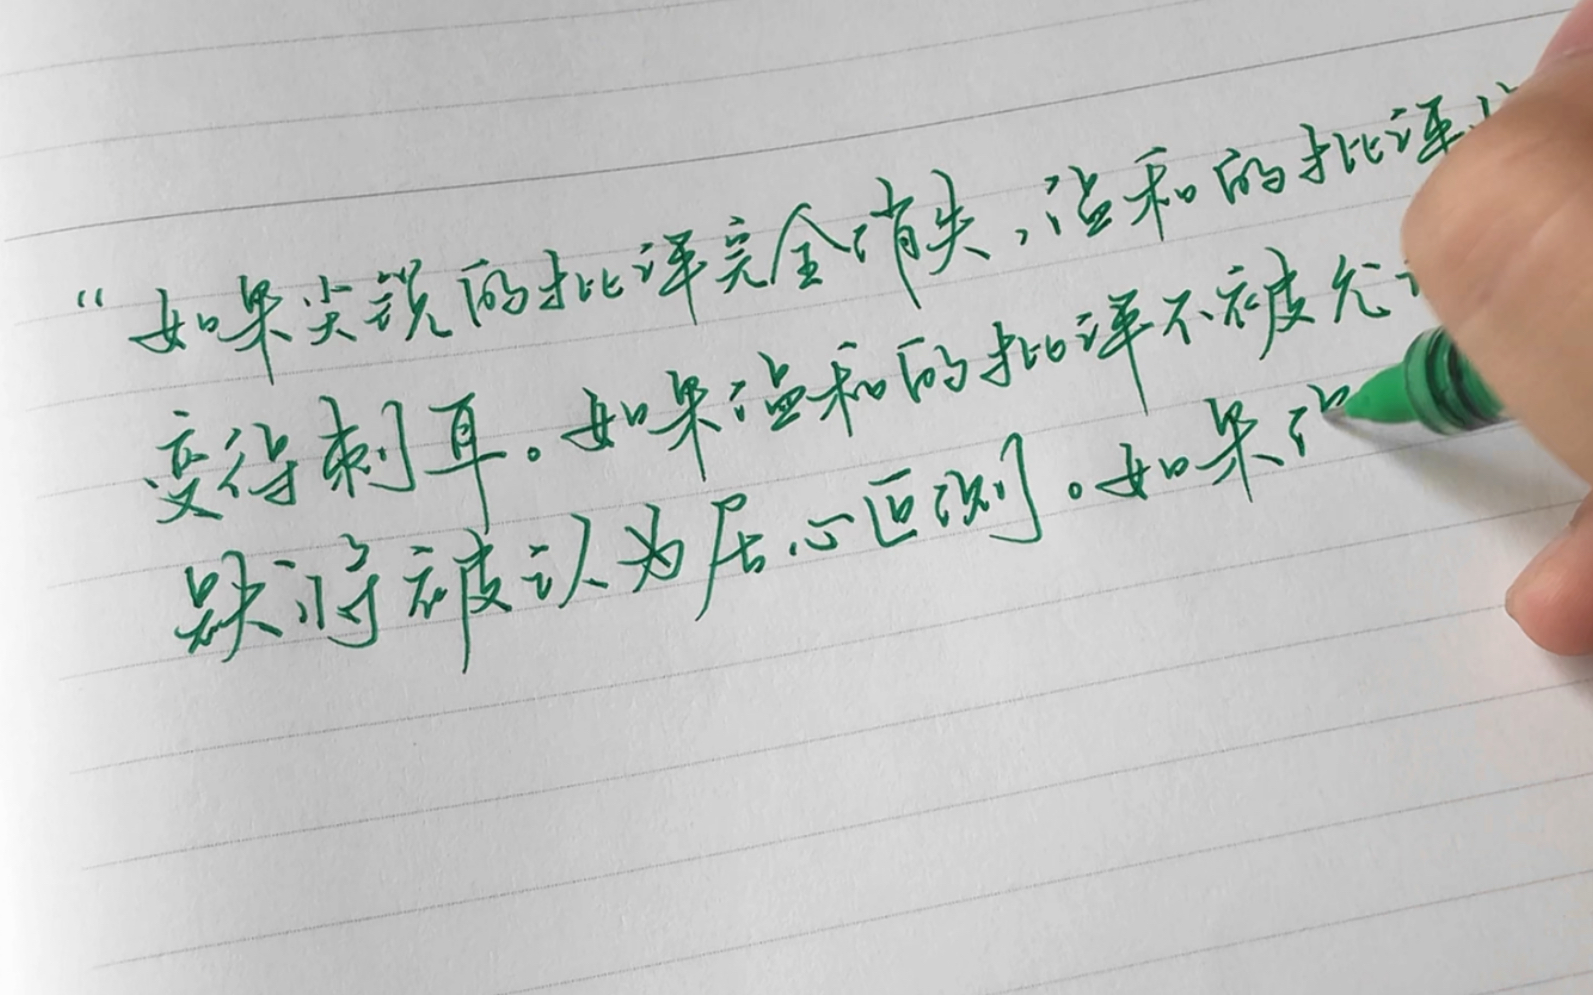 “如果尖锐的批评完全消失，温和的批评
变得刺耳。如果温和的批评不被允
默将被认为居心叵测。如果